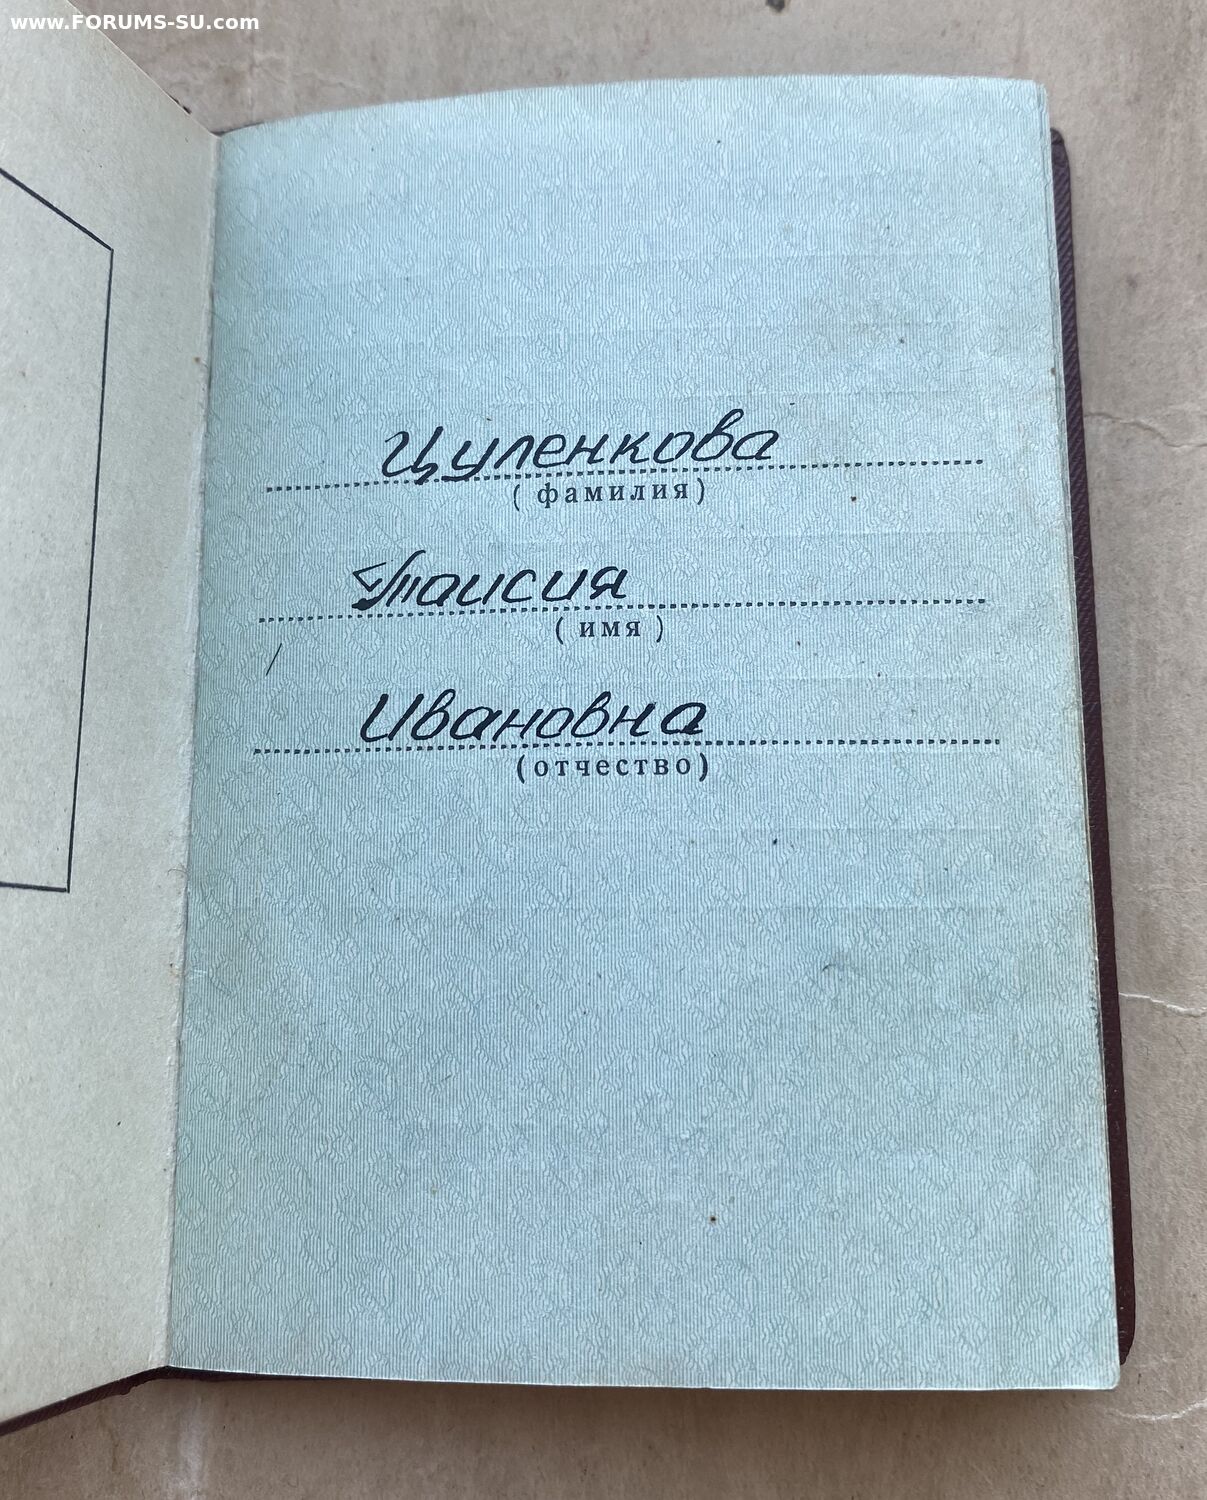 www.FORUMS-SU.com
Цуленкова
( фамилия)
Таисия
( имя )
Ивановна
(отчество)